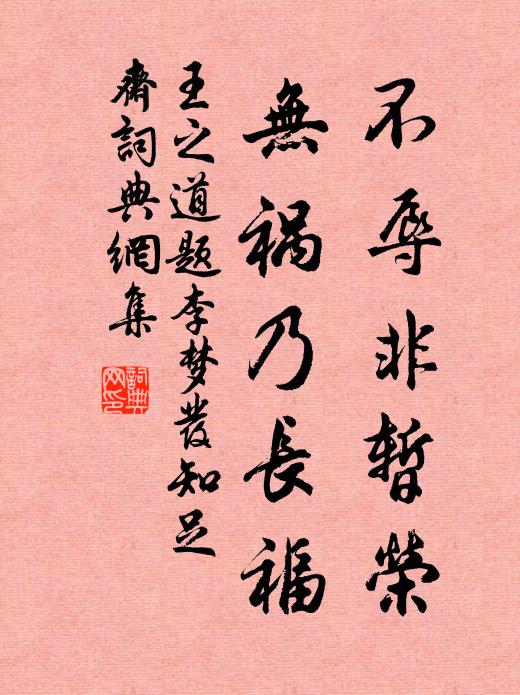 不辱非暫榮
無禍乃長福
王之道题李梦发知足
齋詞典網集
詞典网印